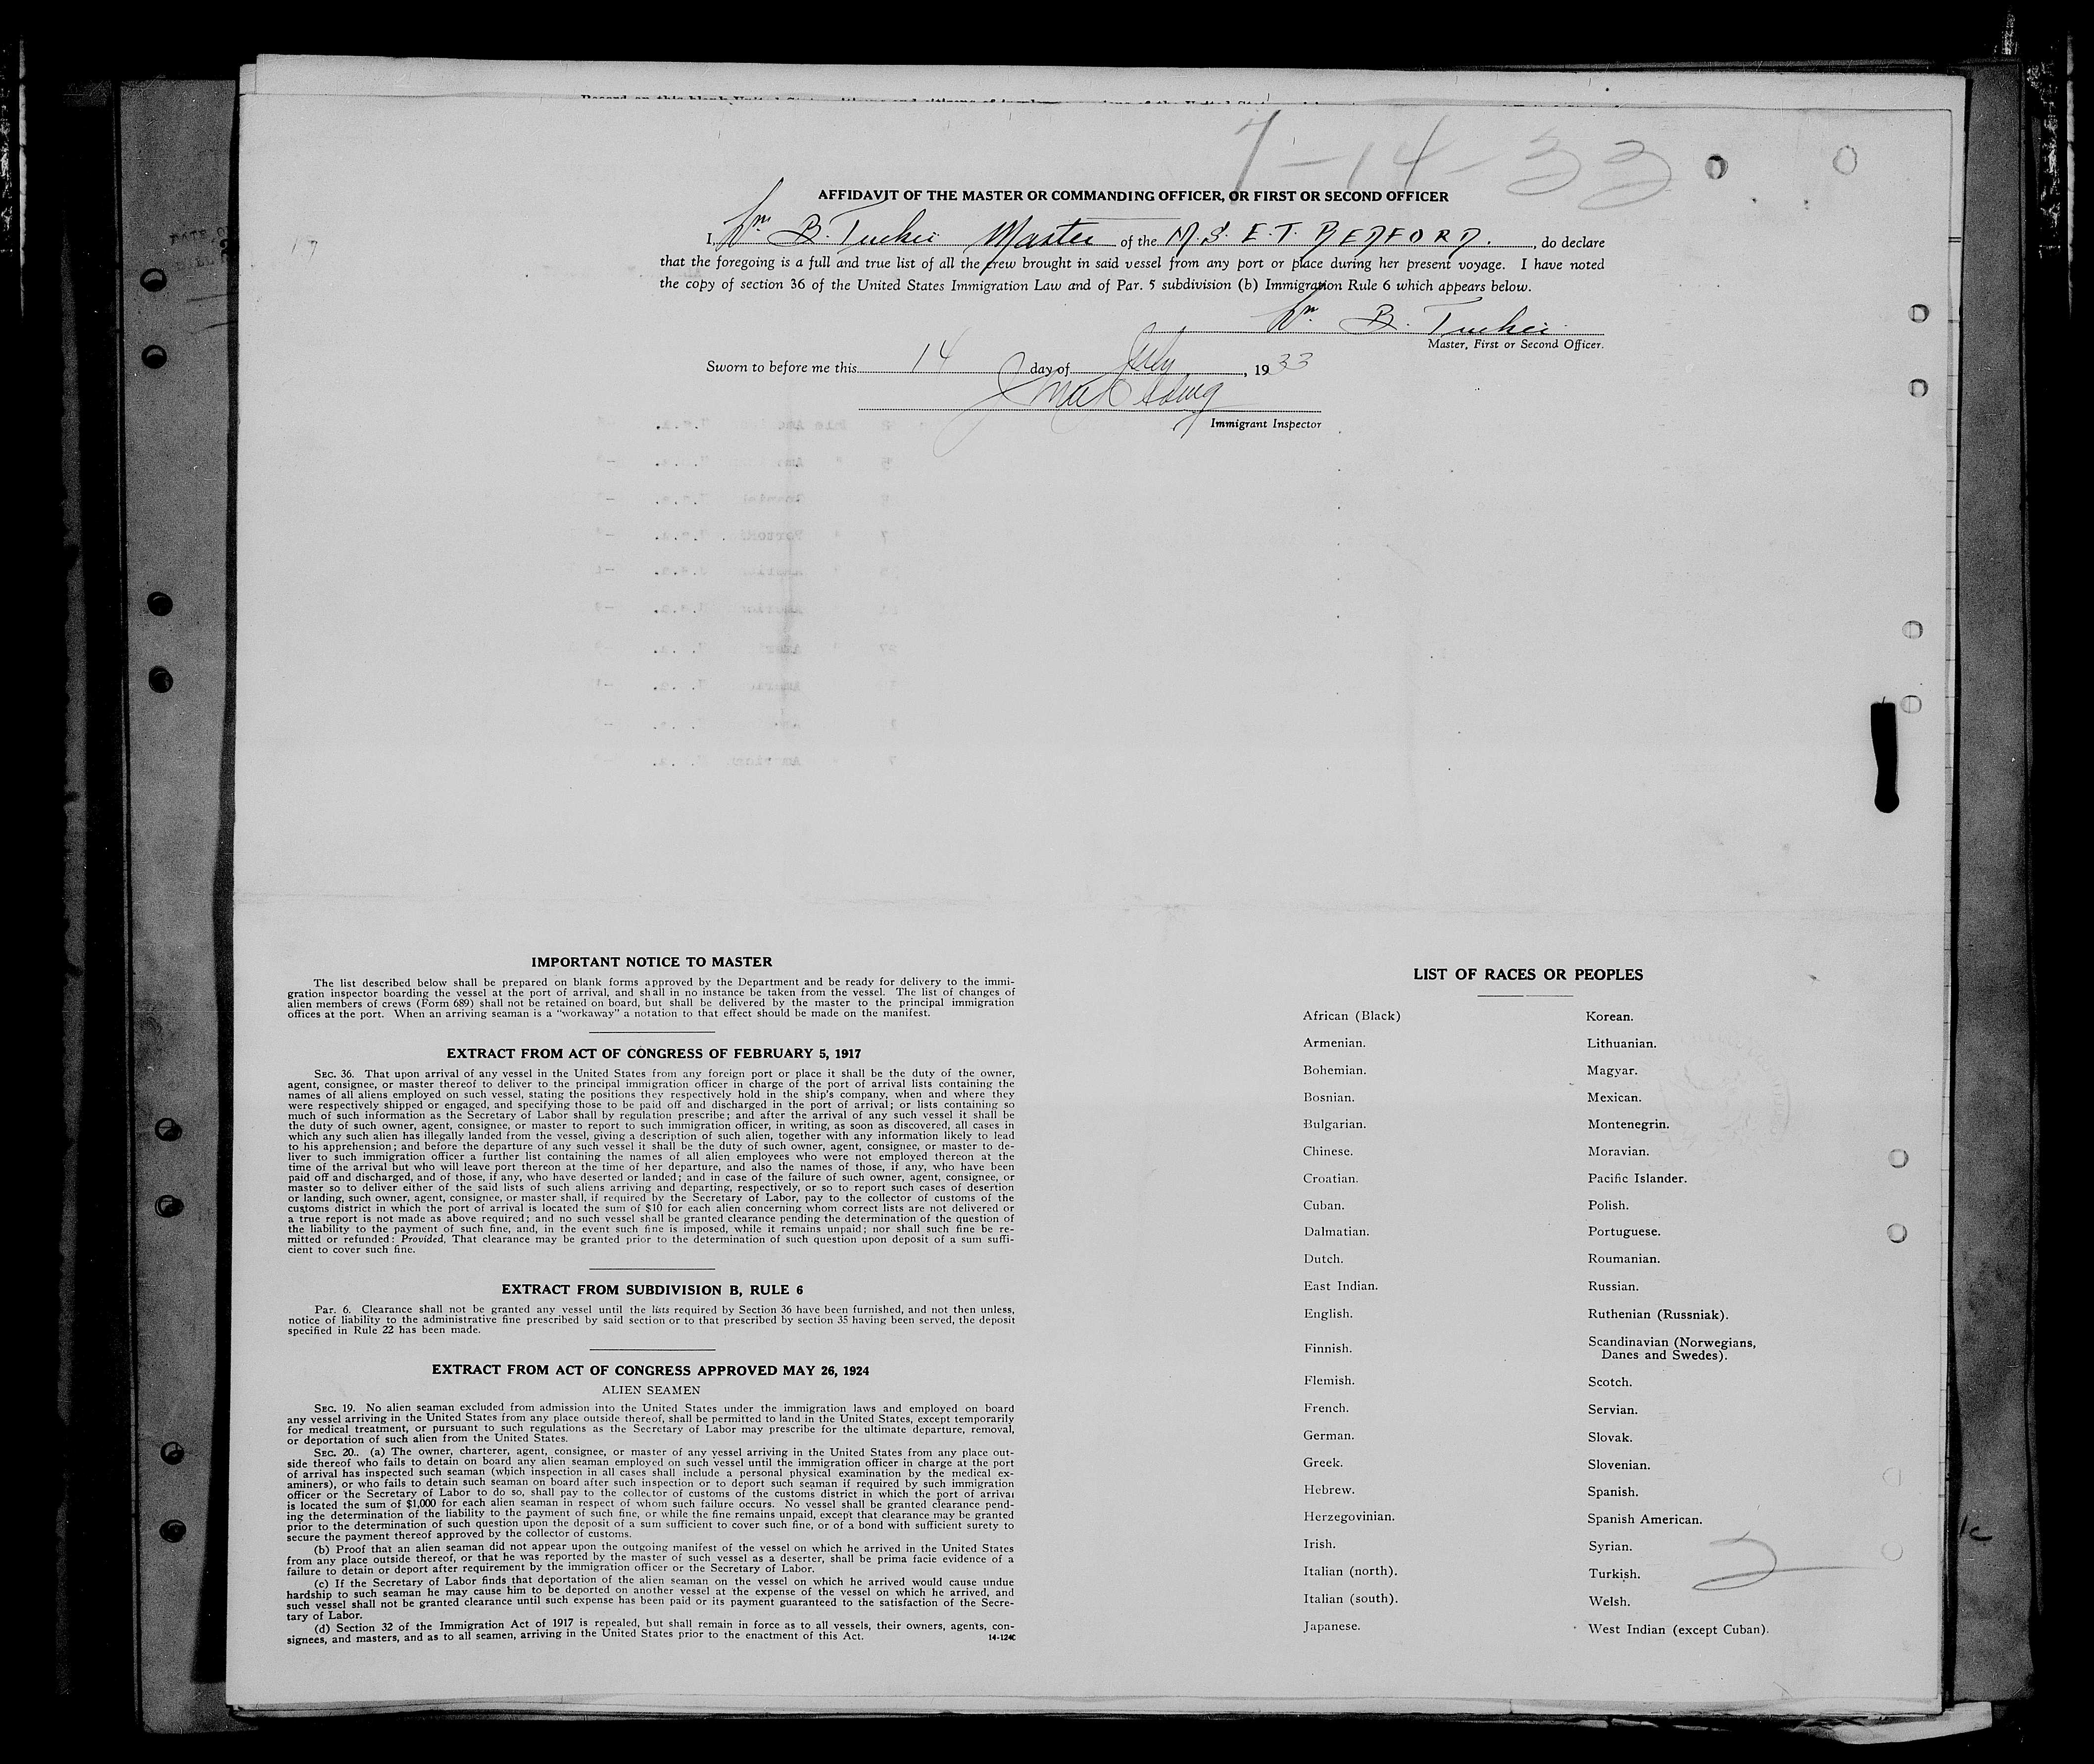 7-14-33
AFFIDAVIT OF THE MASTER OR COMMANDING OFFICER, OR FIRST OR SECOND OFFICER
I, Wm. B. Tucker Master of the M.S. E.T. BEDFORD., do declare
that the foregoing is a full and true list of all the crew brought in said vessel from any port or place during her present voyage. I have noted
the copy of section 36 of the United States Immigration Law and of Par. 5 subdivision (b) Immigration Rule 6 which appears below.
Wm. B. Tucker
Master, First or Second Officer.
Sworn to before me this 14 day of July, 1933
Immigrant Inspector
17
IMPORTANT NOTICE TO MASTER
The list described below shall be prepared on blank forms approved by the Department and be ready for delivery to the immi-
gration inspector boarding the vessel at the port of arrival, and shall in no instance be taken from the vessel. The list of changes of
alien members of crews (Form 689) shall not be retained on board, but shall be delivered by the master to the principal immigration
offices at the port. When an arriving seaman is a "workaway" a notation to that effect should be made on the manifest.
EXTRACT FROM ACT OF CONGRESS OF FEBRUARY 5, 1917
SEC. 36. That upon arrival of any vessel in the United States from any foreign port or place it shall be the duty of the owner,
agent, consignee, or master thereof to deliver to the principal immigration officer in charge of the port of arrival lists containing the
names of all aliens employed on such vessel, stating the positions they respectively hold in the ship's company, when and where they
were respectively shipped or engaged, and specifying those to be paid off and discharged in the port of arrival; or lists containing so
much of such information as the Secretary of Labor shall by regulation prescribe; and after the arrival of any such vessel it shall be
the duty of such owner, agent, consignee, or master to report to such immigration officer, in writing, as soon as discovered, all cases in
which any such alien has illegally landed from the vessel, giving a description of such alien, together with any information likely to lead
to his apprehension; and before the departure of any such vessel it shall be the duty of such owner, agent, consignee, or master to de-
liver to such immigration officer a further list containing the names of all alien employees who were not employed thereon at the
time of the arrival but who will leave port thereon at the time of her departure, and also the names of those, if any, who have been
paid off and discharged, and of those, if any, who have deserted or landed; and in case of the failure of such owner, agent, consignee, or
master so to deliver either of the said lists of such aliens arriving and departing, respectively, or so to report such cases of desertion
or landing, such owner, agent, consignee, or master shall, if required by the Secretary of Labor, pay to the collector of customs of the
customs district in which the port of arrival is located the sum of $10 for each alien concerning whom correct lists are not delivered or
a true report is not made as above required; and no such vessel shall be granted clearance pending the determination of the question of
the liability to the payment of such fine, and, in the event such fine is imposed, while it remains unpaid; nor shall such fine be re-
mitted or refunded: Provided, That clearance may be granted prior to the determination of such question upon deposit of a sum suffi-
cient to cover such fine.
EXTRACT FROM SUBDIVISION B, RULE 6
Par. 6. Clearance shall not be granted any vessel until the lists required by Section 36 have been furnished, and not then unless,
notice of liability to the administrative fine prescribed by said section or to that prescribed by section 35 having been served, the deposit
specified in Rule 22 has been made.
EXTRACT FROM ACT OF CONGRESS APPROVED MAY 26, 1924
ALIEN SEAMEN
SEC. 19. No alien seaman excluded from admission into the United States under the immigration laws and employed on board
any vessel arriving in the United States from any place outside thereof, shall be permitted to land in the United States, except temporarily
for medical treatment, or pursuant to such regulations as the Secretary of Labor may prescribe for the ultimate departure, removal,
or deportation of such alien from the United States.
SEC. 20. (a) The owner, charterer, agent, consignee, or master of any vessel arriving in the United States from any place out-
side thereof who fails to detain on board any alien seaman employed on such vessel until the immigration officer in charge at the port
of arrival has inspected such seaman (which inspection in all cases shall include a personal physical examination by the medical ex-
aminers), or who fails to detain such seaman on board after such inspection or to deport such seaman if required by such immigration
officer or the Secretary of Labor to do so, shall pay to the collector of customs of the customs district in which the port of arrival
is located the sum of $1,000 for each alien seaman in respect of whom such failure occurs. No vessel shall be granted clearance pend-
ing the determination of the liability to the payment of such fine, or while the fine remains unpaid, except that clearance may be granted
prior to the determination of such question upon the deposit of a sum sufficient to cover such fine, or of a bond with sufficient surety to
secure the payment thereof approved by the collector of customs.
(b) Proof that an alien seaman did not appear upon the outgoing manifest of the vessel on which he arrived in the United States
from any place outside thereof, or that he was reported by the master of such vessel as a deserter, shall be prima facie evidence of a
failure to detain or deport after requirement by the immigration officer or the Secretary of Labor.
(c) If the Secretary of Labor finds that deportation of the alien seaman on the vessel on which he arrived would cause undue
hardship to such seaman he may cause him to be deported on another vessel at the expense of the vessel on which he arrived, and
such vessel shall not be granted clearance until such expense has been paid or its payment guaranteed to the satisfaction of the Secre-
tary of Labor.
(d) Section 32 of the Immigration Act of 1917 is repealed, but shall remain in force as to all vessels, their owners, agents, con-
signees, and masters, and as to all seamen, arriving in the United States prior to the enactment of this Act.
14-124C
LIST OF RACES OR PEOPLES
African (Black)
Armenian.
Bohemian.
Bosnian.
Bulgarian.
Chinese.
Croatian.
Cuban.
Dalmatian.
Dutch.
East Indian.
English.
Finnish.
Flemish.
French.
German.
Greek.
Hebrew.
Herzegovinian.
Irish.
Italian (north).
Italian (south).
Japanese.
Korean.
Lithuanian.
Magyar.
Mexican.
Montenegrin.
Moravian.
Pacific Islander.
Polish.
Portuguese.
Roumanian.
Russian.
Ruthenian (Russniak).
Scandinavian (Norwegians,
Danes and Swedes).
Scotch.
Servian.
Slovak.
Slovenian.
Spanish.
Spanish American.
Syrian.
Turkish.
Welsh.
West Indian (except Cuban).
2